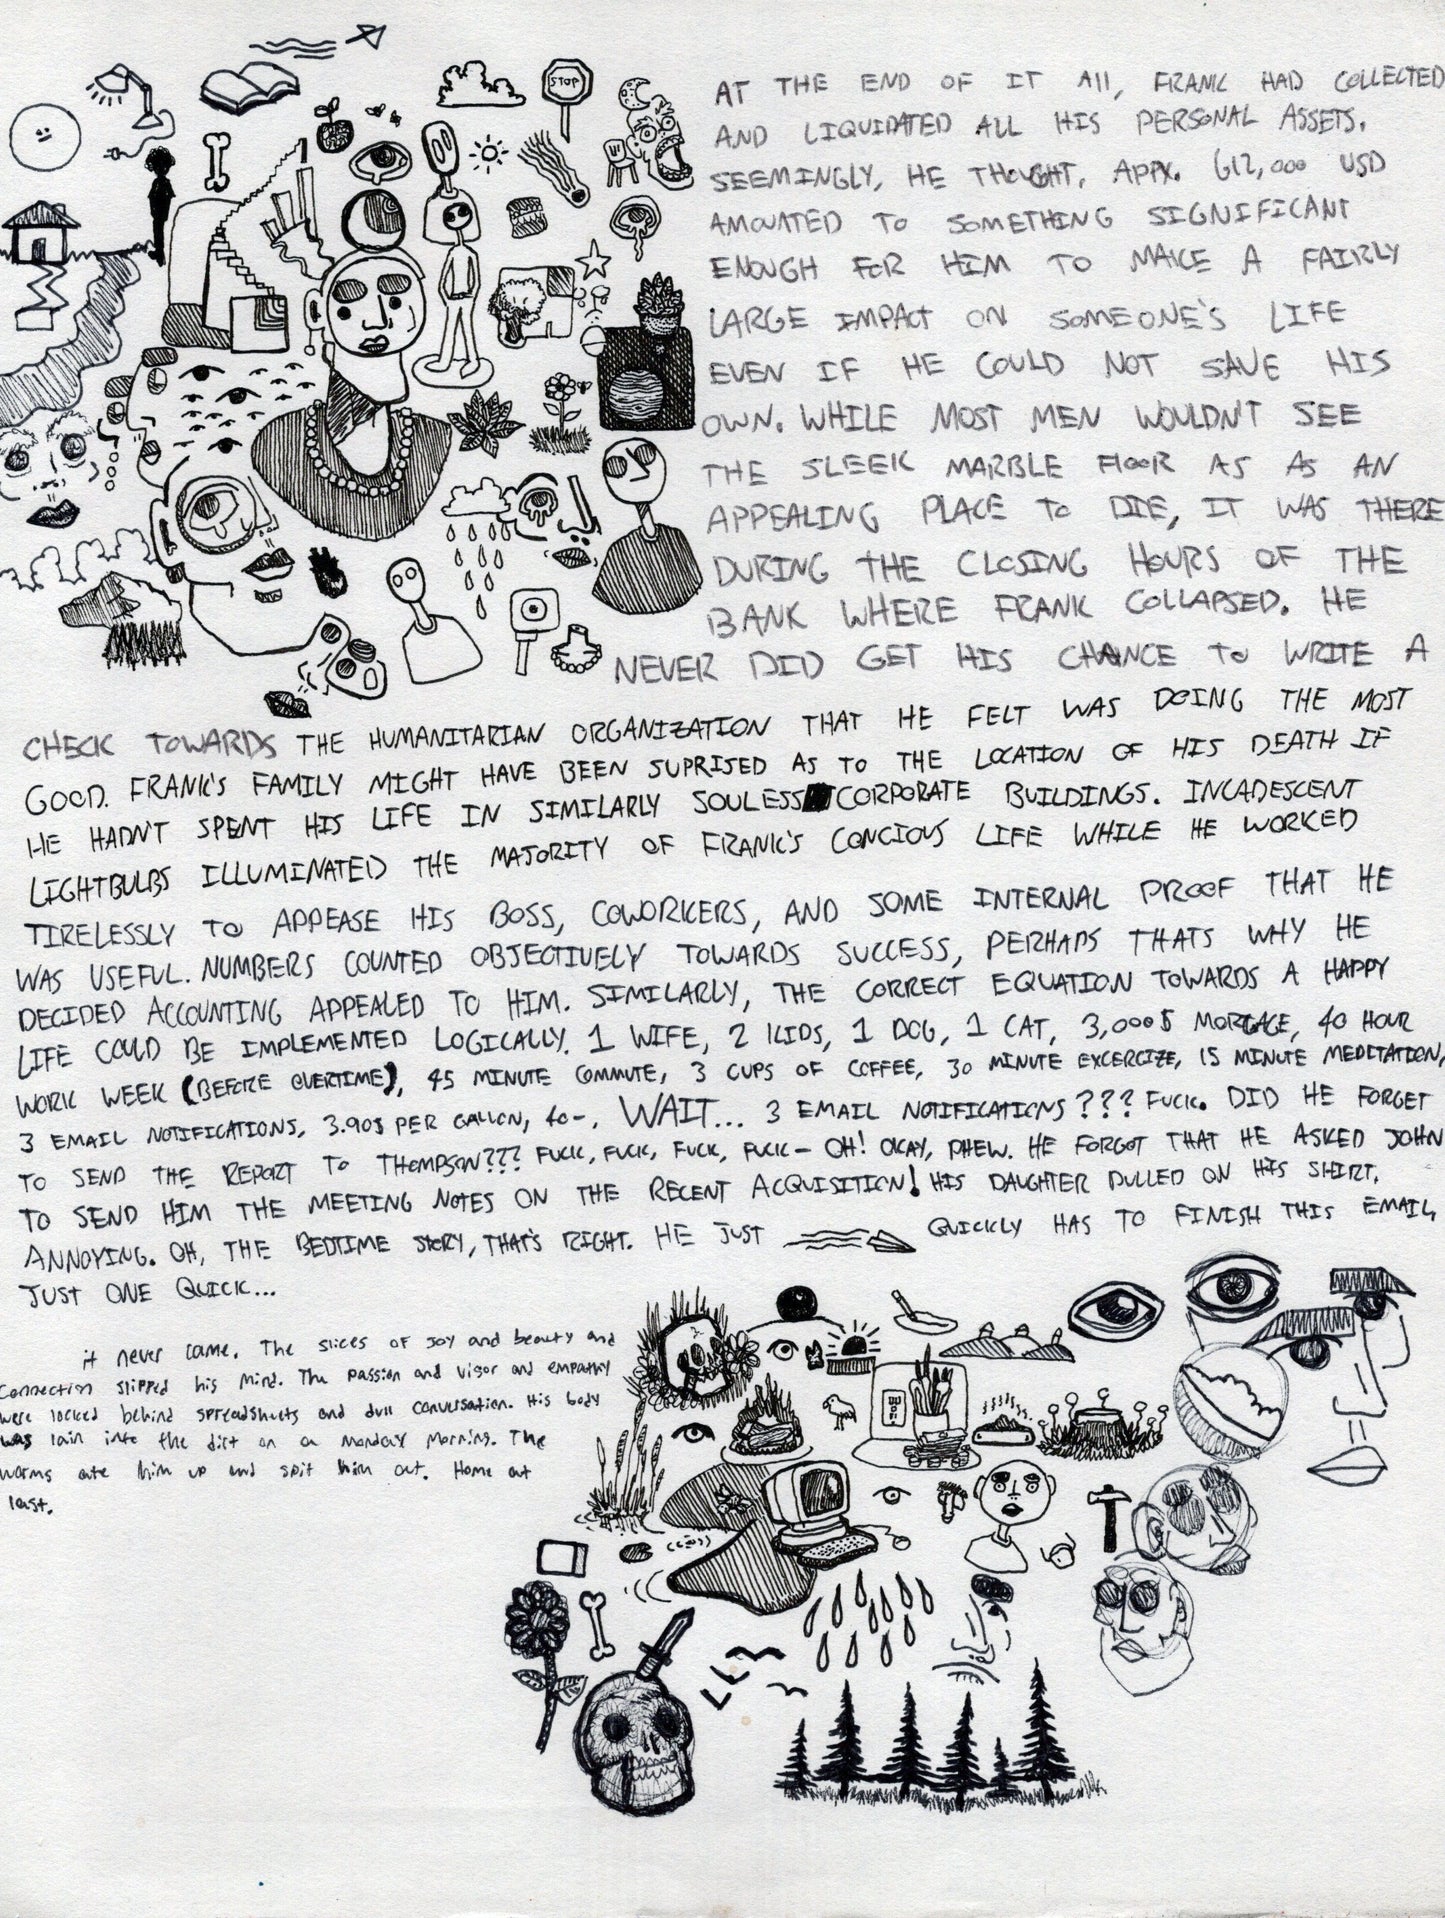 STOP
AT THE END OF IT All, FRANK HAD COLLECTED
AND LIQUIDATED ALL HIS PERSONAL ASSETS.
SEEMINGLY, HE THOUGHT, APPX. 612,000 USD
AMOUNTED TO SOMETHING SIGNIFICANT
ENOUGH FOR HIM TO MAKE A FAIRLY
LARGE IMPACT ON SOMEONE'S LIFE
EVEN IF HE COULD NOT SAVE HIS
OWN. WHILE MOST MEN WOULDN'T SEE
THE SLEEK MARBLE FlOOR AS AS AN
APPEALING PLACE TO DIE, IT WAS THERE
DURING THE CLOSING HOURS OF THE
BANK WHERE FRANK COLLAPSED. HE
NEVER DID GET HIS CHANCE TO WRITE A
CHECK TOWARDS THE HUMANITARIAN ORGANIZATION THAT HE FELT WAS DOING THE MOST
GOOD. FRANK'S FAMILY MIGHT HAVE BEEN SUPRISED AS TO THE LOCATION OF HIS DEATH IF
HE HADN'T SPENT HIS LIFE IN SIMILARLY SOULESS CORPORATE BUILDINGS. INCADESCENT
LIGHTBULBS ILLUMINATED THE MAJORITY OF FRANK'S CONCIOUS LIFE WHILE HE WORKED
TIRELESSLY TO APPEASE HIS BOSS, COWORKERS, AND SOME INTERNAL PROOF THAT HE
WAS USEFUL. NUMBERS COUNTED OBJECTIVELY TOWARDS SUCCESS, PERHAPS THATS WHY HE
DECIDED ACCOUNTING APPEALED TO HIM. SIMILARLY, THE CORRECT EQUATION TOWARDS A HAPPY
LIFE COULD BE IMPLEMENTED LOGICALLY. 1 WIFE, 2 KIDS, 1 DOG, 1 CAT, 3,000$ MORTGAGE, 40 HOUR
WORK WEEK (BEFORE OVERTIME), 45 MINUTE COMMUTE, 3 CUPS OF COFFEE, 30 MINUTE EXCERCIZE, 15 MINUTE MEDITATION,
3 EMAIL NOTIFICATIONS, 3.90$ PER GALLON, 40-, WAIT... 3 EMAIL NOTIFICATIONS??? FUCK. DID HE FORGET
TO SEND THE REPORT TO THOMPSON??? FUCK, FUCK, FUCK, FUCK- OH! OKAY, PHEW. HE FORGOT THAT HE ASKED JOHN
TO SEND HIM THE MEETING NOTES ON THE RECENT ACQUISITION! HIS DAUGHTER PULLED ON HIS SHIRT.
ANNOYING. OH, THE BEDTIME STORY, THAT'S RIGHT. HE JUST QUICKLY HAS TO FINISH THIS EMAIL,
JUST ONE QUICK...
it never came. The slices of joy and beauty and
connection slipped his mind. The passion and vigor and empathy
were locked behind spreadsheets and dull conversation. His body
was lain into the dirt on a monday morning. The
worms ate him up and spit him out. Home at
last.